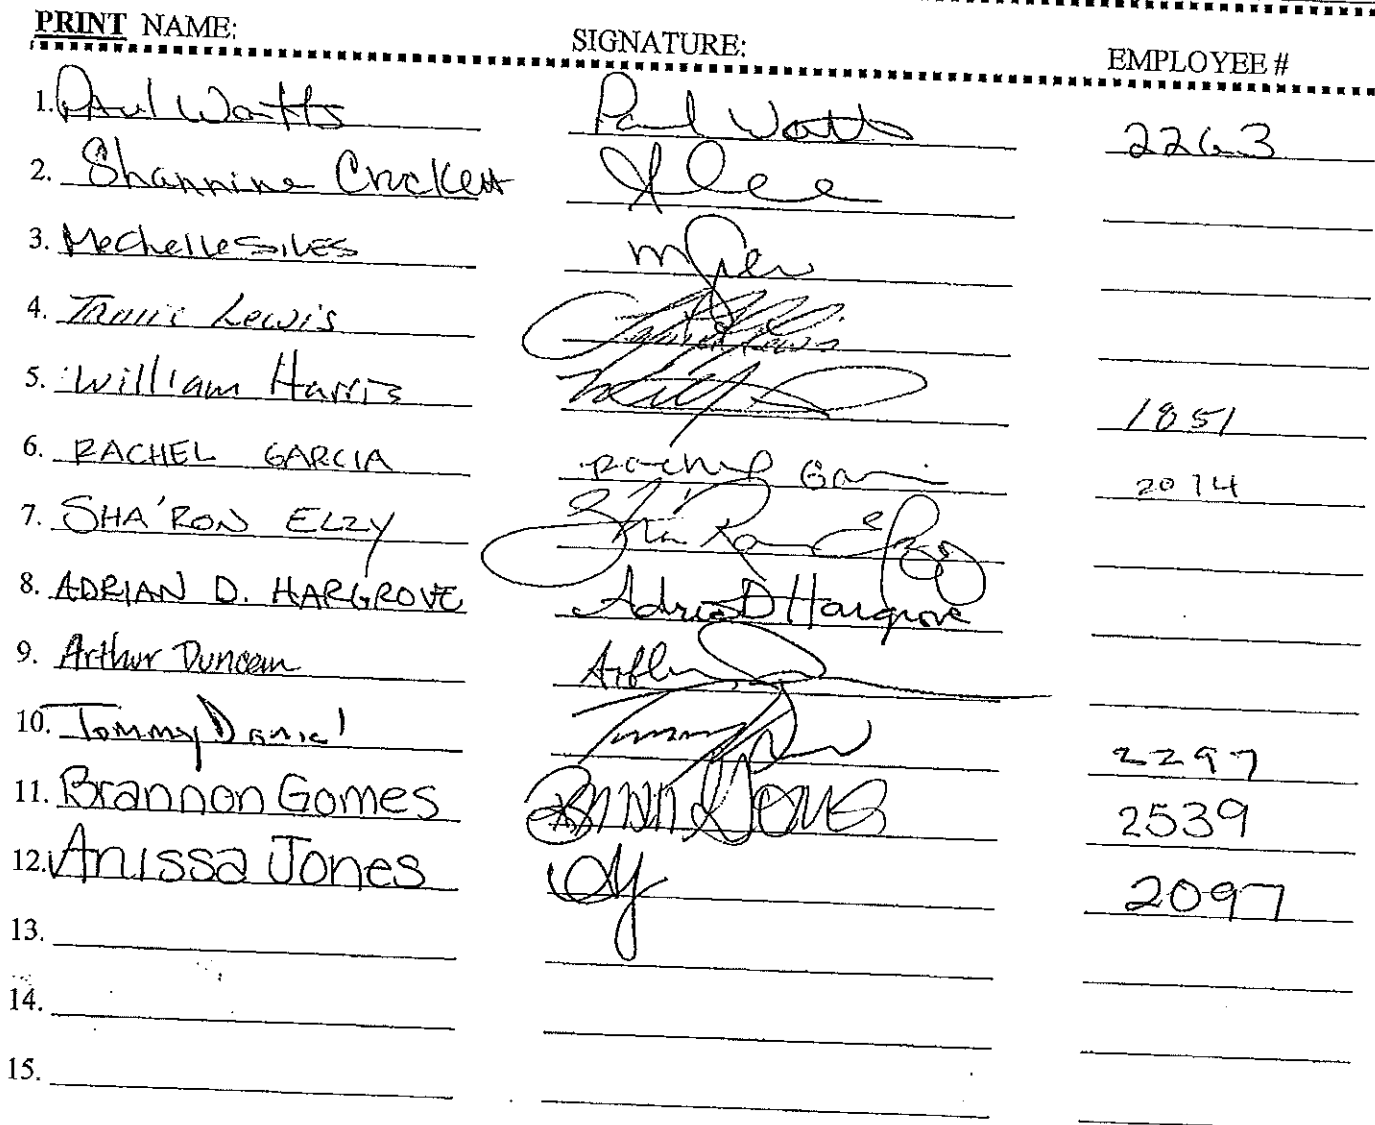 PRINT NAME: SIGNATURE: EMPLOYEE #
1. Paul Watts Paul Watts 2263
2. Shannine Crockett
3. Mechelle Siles
4. Tamie Lewis
5. William Harris 1851
6. RACHEL GARCIA Rachel Garci 2014
7. SHA'RON ELZY Sha'Ron Elzy
8. ADRIAN D. HARGROVE Adrian D Hargrove
9. Arthur Duncan
10. Tommy Daniel 2297
11. Brannon Gomes 2539
12. Anissa Jones 2097
13.
14.
15.